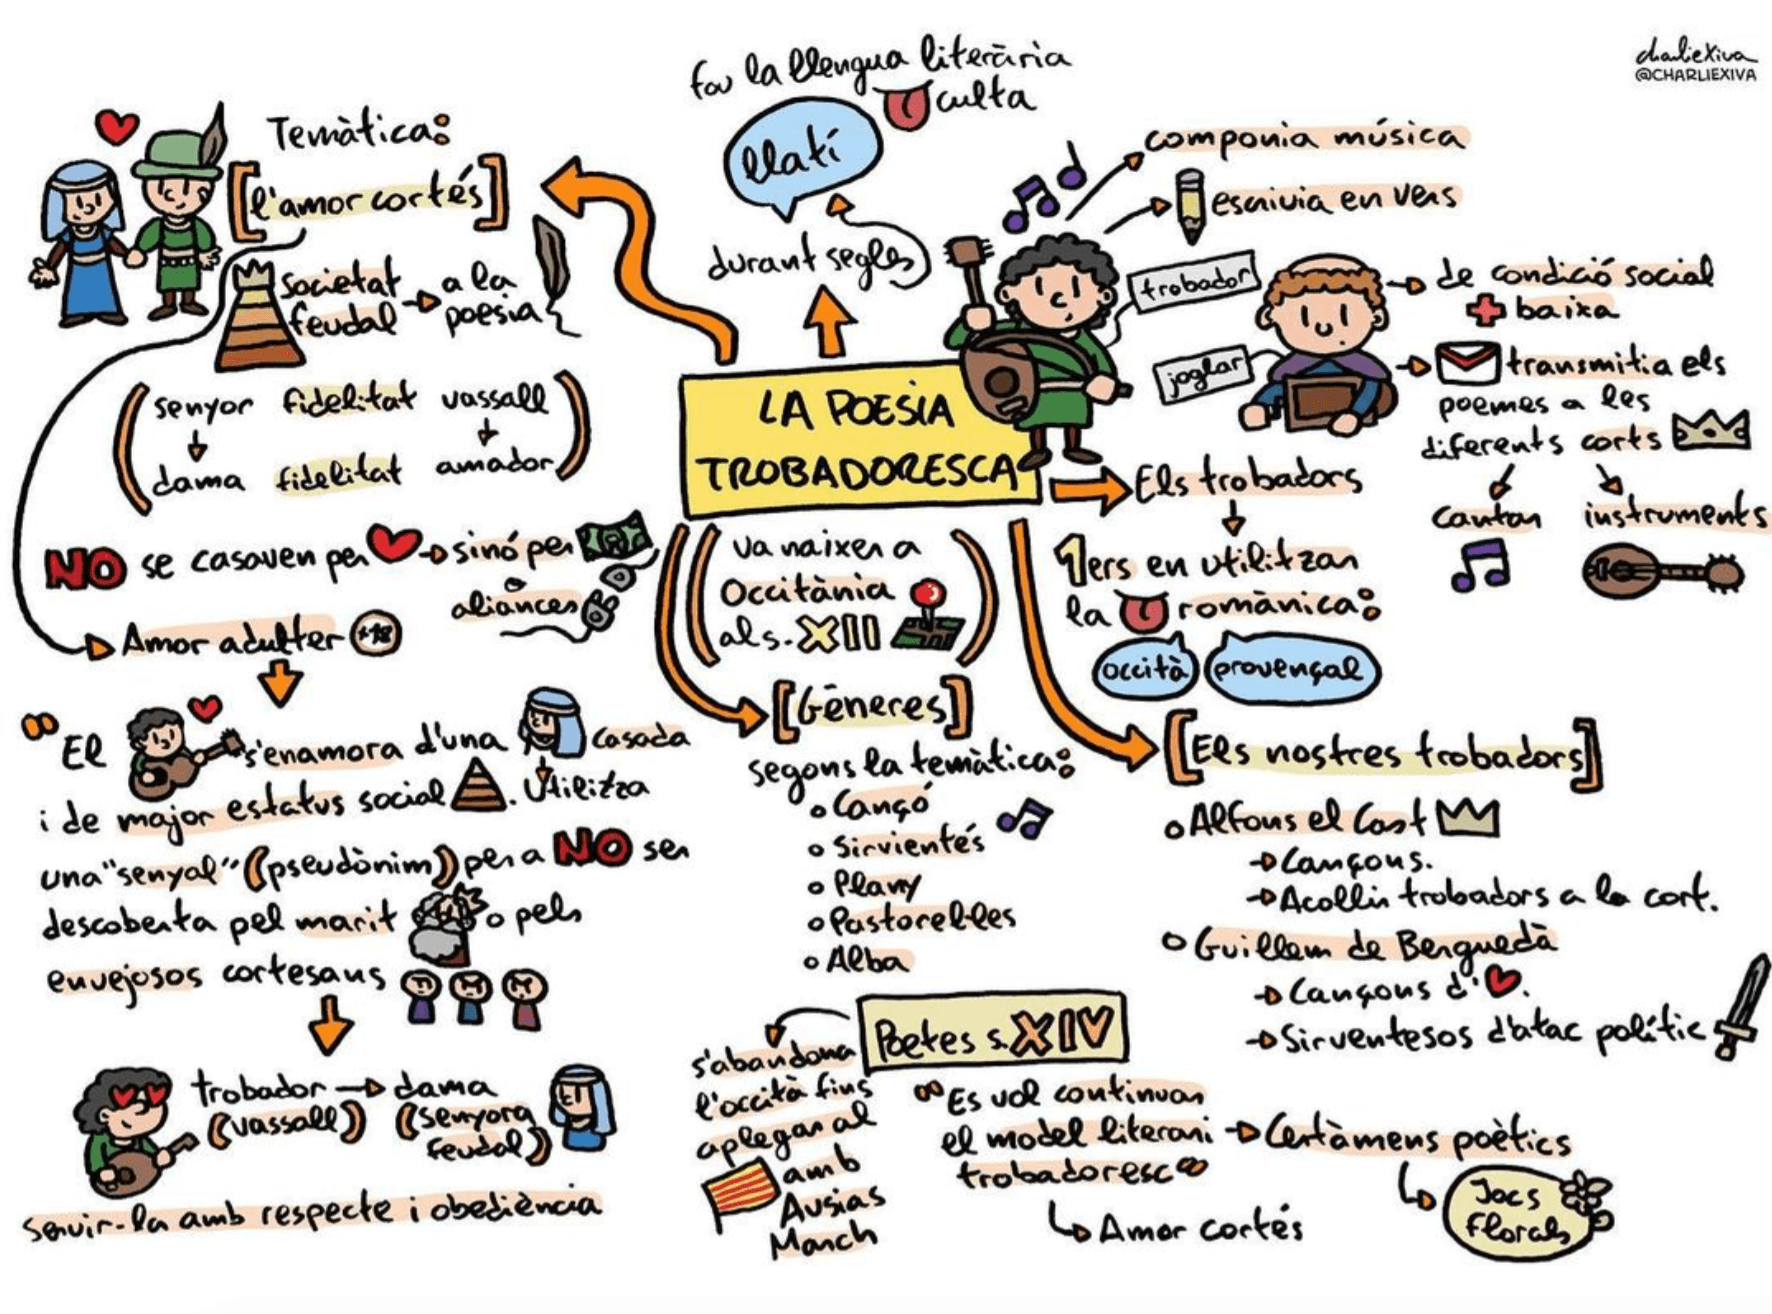 charliexiva
@CHARLIEXIVA
fou la llengua literària
culta
llatí
durant segles
LA POESIA
TROBADORESCA
Temàtica:
[l'amor cortés]
societat
feudal
a la
poesia
(senyor fidelitat vassall
dama fidelitat amador)
NO se casaven per sinó per
aliances
Amor adúlter +18
"El s'enamora d'una casada
i de major estatus social. Utilitza
una "senyal" (pseudònim) per a NO ser
descoberta pel marit o pels
envejosos cortesans
trobador dama
(vassall) (senyora
feudal)
Servir-la amb respecte i obediència
(va naixer a
Occitània
al s. XII)
[Gèneres]
segons la temàtica:
Cançó
Sirvientés
Plany
Pastorel·les
Alba
trobador
componia música
escrivia en vers
joglar
de condició social
+ baixa
transmitia els
poemes a les
diferents corts
cantar
instruments
Els trobadors
1ers en utilitzar
la romànica:
occità
provençal
[Els nostres trobadors]
Alfons el Cast
Cançons.
Acollir trobadors a la cort.
Guillem de Berguedà
Cançons d'.
Sirventesos d'atac polític
Poetes s. XIV
s'abandona
l'occità fins
aplegar al
amb
Ausias
March
"Es vol continuar
el model literari
trobadoresc"
Amor cortés
Certàmens poètics
Jocs
Florals